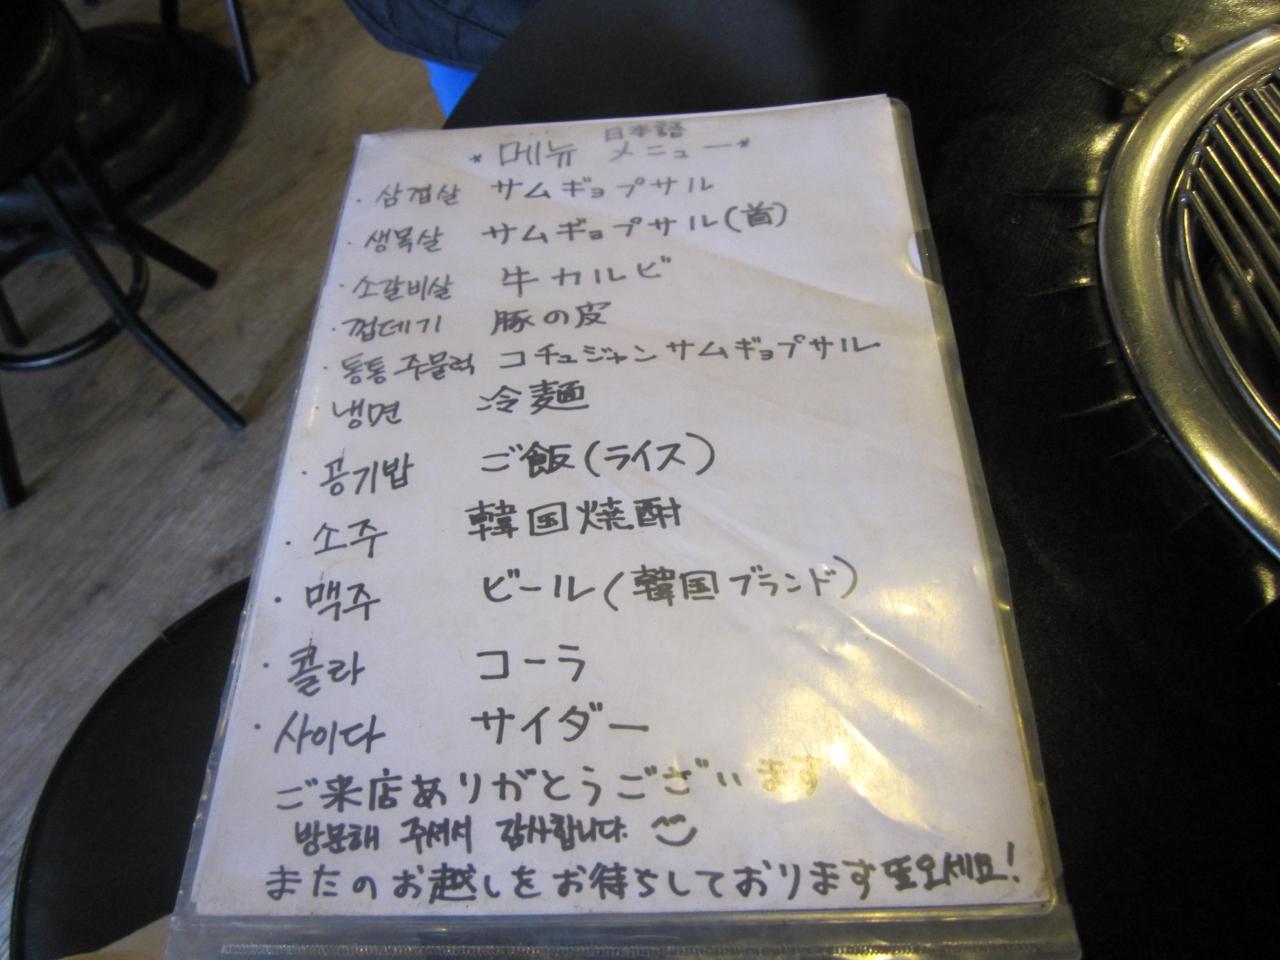 日本語
* 메뉴 メニュー *
· 삼겹살 サムギョプサル
· 생목살 サムギョプサル(首)
· 소갈비살 牛カルビ
· 껍데기 豚の皮
· 통통주물럭 コチュジャンサムギョプサル
· 냉면 冷麺
· 공기밥 ご飯(ライス)
· 소주 韓国焼酎
· 맥주 ビール(韓国ブランド)
· 콜라 コーラ
· 사이다 サイダー
ご来店ありがとうございます
방문해 주셔서 감사합니다.
またのお越しをお待ちしております 또오세요!